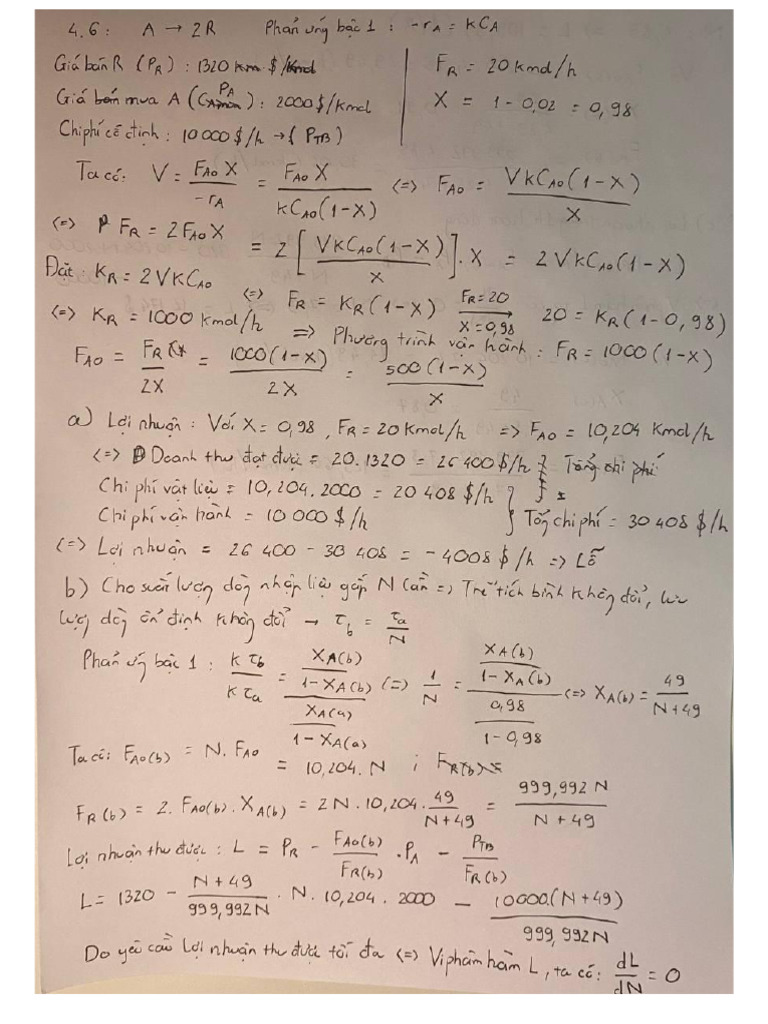 4.6: A → 2R Phản ứng bậc 1: -rA = kCA
Giá bán R (PR): 1320 $/kmol
FR = 20 kmol/h
Giá mua A (PA): 2000 $/kmol
X = 1 - 0,02 = 0,98
Chi phí cố định: 10 000 $/h → (PTB)
Ta có: V = FAo X / -rA = FAo X / kCAo(1-X) <=> FAo = VkCAo(1-X) / X
<=> FR = 2FAoX = 2 [VkCAo(1-X) / X] . X = 2VkCAo(1-X)
Đặt: KR = 2VkCAo
<=> FR = KR(1-X) →(FR=20, X=0,98) 20 = KR(1-0,98)
<=> KR = 1000 kmol/h => Phương trình vận hành: FR = 1000(1-X)
FAo = FR / 2X = 1000(1-X) / 2X = 500(1-X) / X
a) Lợi nhuận: Với X = 0,98, FR = 20 kmol/h => FAo = 10,204 kmol/h
<=> Doanh thu đạt được = 20.1320 = 26 400 $/h } Tổng chi phí
Chi phí vật liệu = 10,204.2000 = 20 408 $/h
Chi phí vận hành = 10 000 $/h } Tổng chi phí = 30 408 $/h
<=> Lợi nhuận = 26 400 - 30 408 = -4008 $/h => Lỗ
b) Cho suất lượng dòng nhập liệu gấp N lần => Thể tích bình không đổi, lưu
lượng dòng ổn định không đổi → τb = τa / N
Phản ứng bậc 1: kτb / kτa = (XA(b) / 1-XA(b)) / (XA(a) / 1-XA(a)) <=> 1/N = (XA(b) / 1-XA(b)) / (0,98 / 1-0,98) <=> XA(b) = 49 / N+49
Ta có: FAo(b) = N.FAo = 10,204.N ; FR(b) =
FR(b) = 2.FAo(b).XA(b) = 2N.10,204.49 / N+49 = 999,992N / N+49
Lợi nhuận thu được: L = PR - FAo(b) / FR(b) .PA - PTB / FR(b)
L = 1320 - N+49 / 999,992N . N.10,204.2000 - 10000.(N+49) / 999,992N
Do yêu cầu lợi nhuận thu được tối đa <=> Vi phân hàm L, ta có: dL / dN = 0